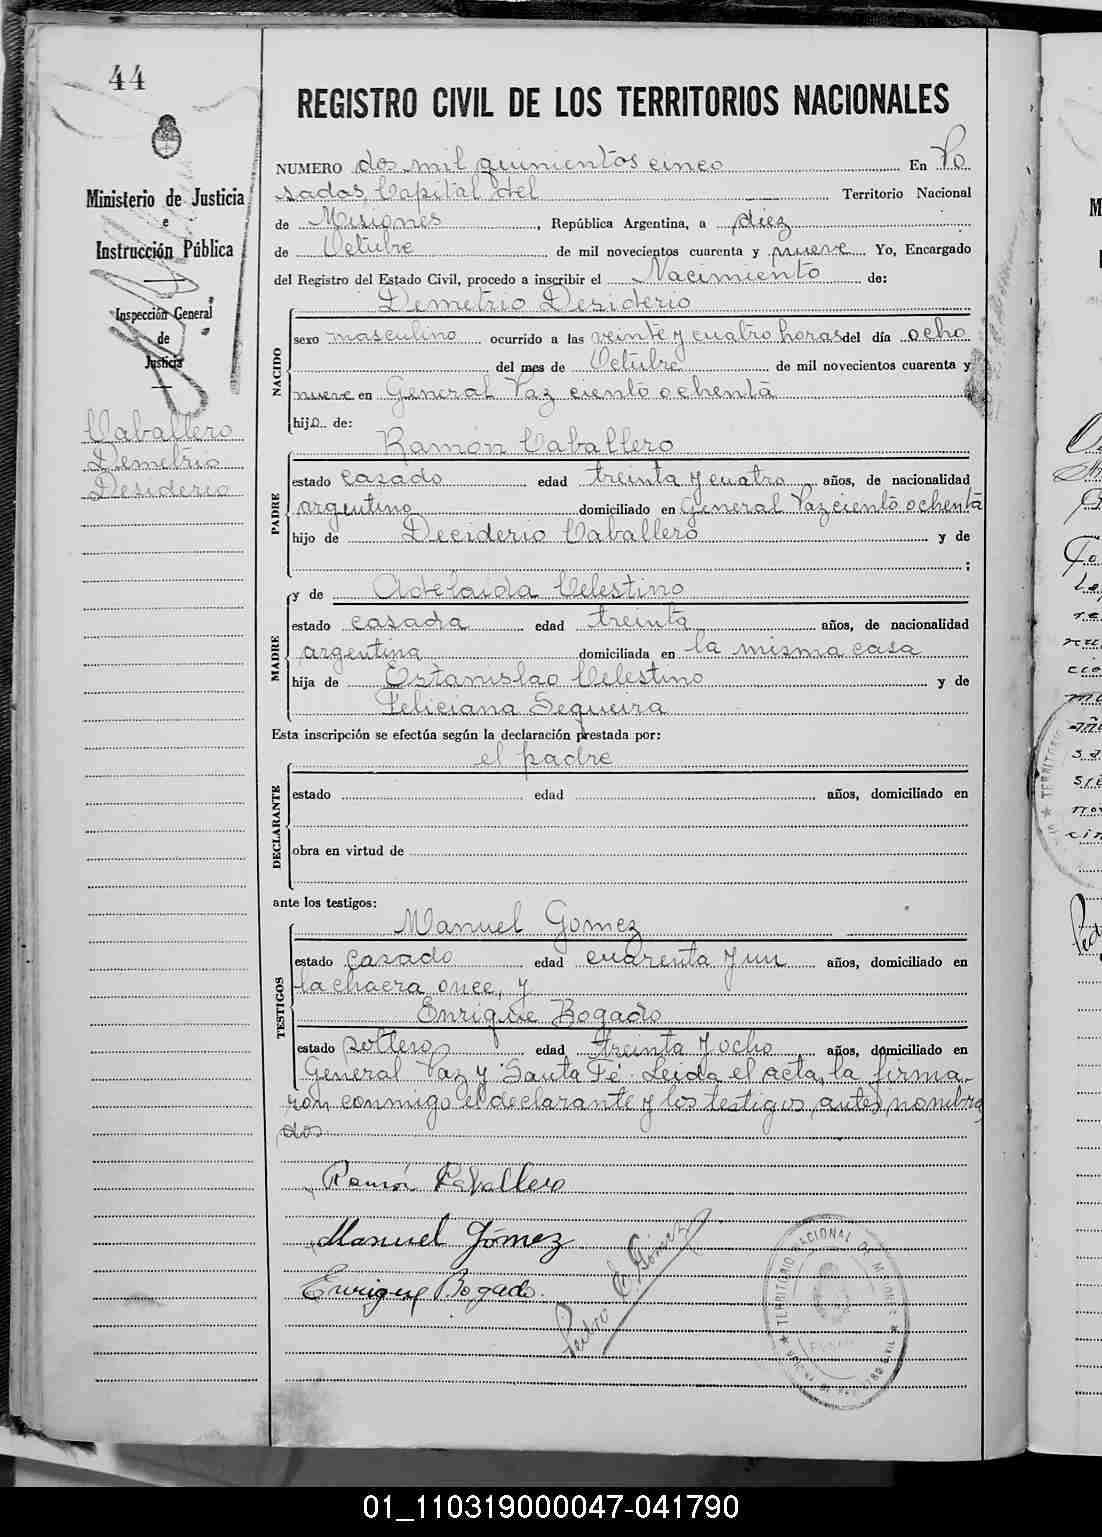 44
Ministerio de Justicia
e
Instrucción Pública
Inspección General
de
Justicia
Caballero
Demetrio
Desiderio
REGISTRO CIVIL DE LOS TERRITORIOS NACIONALES
NUMERO dos mil quinientos cinco En Po
sadas, Capital del Territorio Nacional
de Misiones, República Argentina, a diez
de Octubre de mil novecientos cuarenta y nueve Yo, Encargado
del Registro del Estado Civil, procedo a inscribir el Nacimiento de:
NACIDO
Demetrio Desiderio
sexo masculino ocurrido a las veinte y cuatro horas del día ocho
del mes de Octubre de mil novecientos cuarenta y
nueve en General Paz ciento ochenta
hijo de:
PADRE
Ramón Caballero
estado casado edad treinta y cuatro años, de nacionalidad
argentino domiciliado en General Paz ciento ochenta
hijo de Deciderio Caballero y de
;
MADRE
y de Adelaida Celestino
estado casada edad treinta años, de nacionalidad
argentina domiciliada en la misma casa
hija de Estanislao Celestino y de
Feliciana Sequeira
Esta inscripción se efectúa según la declaración prestada por:
DECLARANTE
el padre
estado edad años, domiciliado en
obra en virtud de
ante los testigos:
TESTIGOS
Manuel Gomez
estado casado edad cuarenta y un años, domiciliado en
la chacra once, y
Enrique Bogado
estado soltero edad treinta y ocho años, domiciliado en
General Paz y Santa Fé. Leida el acta, la firma-
ron conmigo el declarante y los testigos, antes nombra
dos
Ramón Caballero
Manuel Gómez
Enrique Bogado
Pedro E. Gómez
TERRITORIO NACIONAL DE MISIONES
01_110319000047-041790